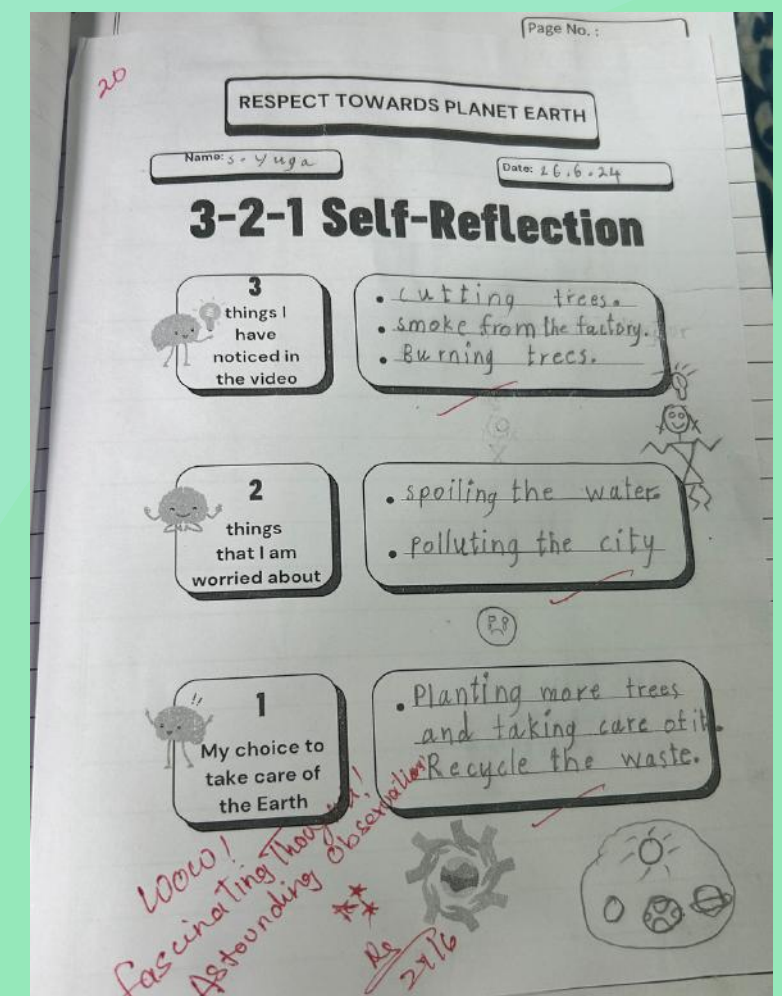 Page No. :
20
RESPECT TOWARDS PLANET EARTH
Name: S. Yuga
Date: 26.6.24
3-2-1 Self-Reflection
3
things I
have
noticed in
the video
• cutting trees.
• smoke from the factory.
• Burning trees.
2
things
that I am
worried about
• spoiling the water.
• polluting the city
!!
1
My choice to
take care of
the Earth
• Planting more trees
and taking care of it.
Recycle the waste.
Wow!
Fascinating Thought!
Astounding Observation!